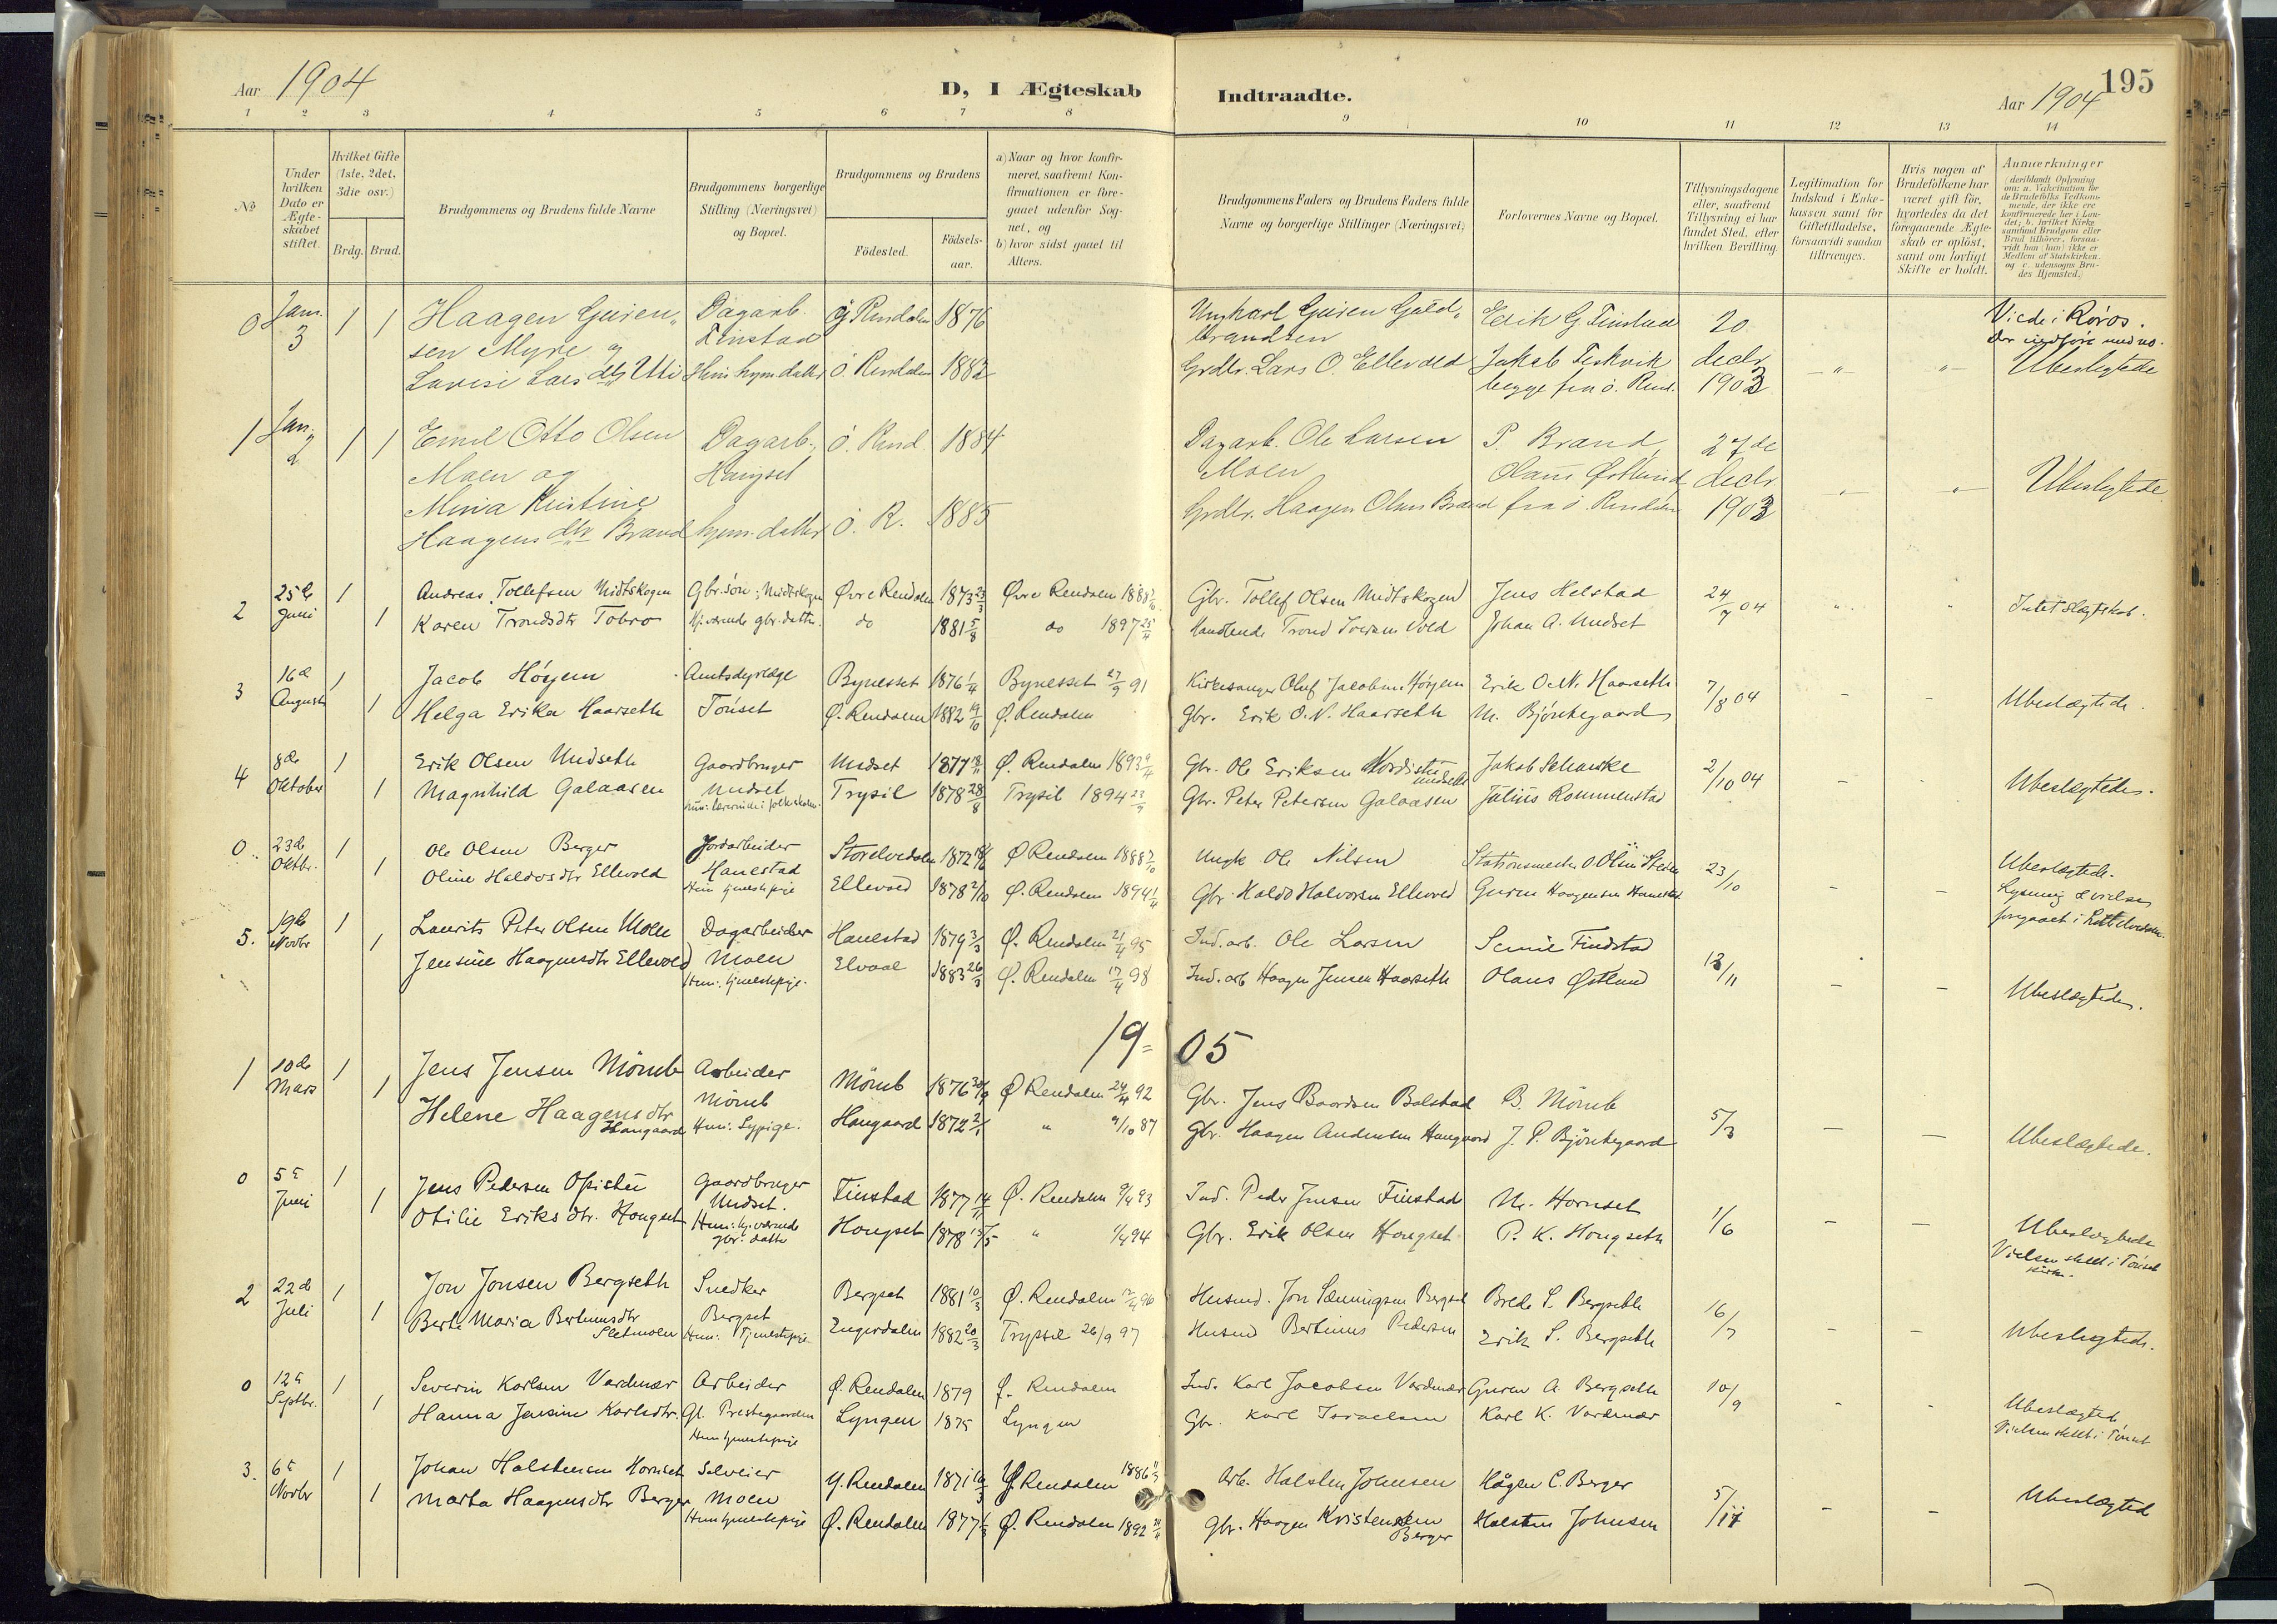 Aar 1904
D, I Ægteskab
Indtraadte.
Aar 1904
195
1 2 3 4 5 6 7 8 9 10 11 12 13 14
No
Under hvilken Dato er Ægteskabet stiftet.
Hvilket Gifte (1ste, 2det, 3die osv.)
Brdg. Brud.
Brudgommens og Brudens fulde Navne
Brudgommens borgerlige Stilling (Næringsvei) og Bopæl.
Brudgommens og Brudens
Fødested.
Fødselsaar.
a) Naar og hvor konfirmeret, saafremt Konfirmationen er foregaaet udenfor Sognet, og
b) hvor sidst gaaet til Alters.
Brudgommens Faders og Brudens Faders fulde Navne og borgerlige Stillinger (Næringsvei)
Forlovernes Navne og Bopæl.
Tillysningsdagene eller, saafremt Tillysning ei har fundet Sted, efter hvilken Bevilling.
Legitimation for Indskud i Enkekassen samt for Giftetilladelse, forsaavidt saadan tiltrænges.
Hvis nogen af Brudefolkene har været gift før, hvorledes da det foregaaende Ægteskab er opløst, samt om lovligt Skifte er holdt.
Anmærkninger
(deriblandt Oplysning om: a. Vakcination for de Brudefolks Vedkommende, der ikke ere konfirmerede her i Landet; b. hvilket Kirkesamfund Brudgom eller Brud tilhører, forsaavidt han (hun) ikke er Medlem af Statskirken, og c. udensogns Brudes Hjemsted.)
0 Jan. 3 1 1 Haagen Guren- Dagarb. Ø Rendalen 1876 Ungkarl Guren Guld- Erik G. Finstad 20 Viede i Røros.
sen Myre og Finstad brandsen
Lovise Lars dtr Utti Hun hjem. dattr Ø. Rendalen 1882 Grdbr. Lars O. Ellevold Jakob Fiskvik decbr " " Ubeslegtede
begge fra ø. Rend. 1903
1 Jan. 2 1 1 Emil Otto Olsen Dagarb. Ø. Rend 1884 Dagarb. Ole Larsen P. Brand 27de
Moen og Hangset Moen Olaus Østlund decbr " " Ubeslegtede
Mina Kristine
Haagens dtr Brand hjem. dattr Ø. R. 1885 Grdbr. Haagen Olsen Brand fra ø Rendalen 1903
2 25de Juni 1 Andreas Tollefsen Midtskogen Gbr.søn, Midtskogen Øvre Rendalen 1873 23/3 Øvre Rendalen 1888 Gbr. Tollef Olsen Midtskogen Jens Helstad 24/7 04 " " Intet slægtskab.
1 Karen Trondsdtr Tobro Hj.værende gbr.datter. do 1881 5/8 do 1897 25/4 Handlende Trond Iversen Vold Johan A. Undset
3 16de August 1 Jacob Höyem Amtsdyrlæge Bynesset 1876 1/4 Bynesset 27/9 91 Kirkesanger Oluf Jacobsen Höyem Erik O.N. Haarseth 7/8 04 – – Ubeslægtede.
1 Helga Erika Haarseth Tönset Ø. Rendalen 1882 19/10 Ø. Rendalen Gbr. Erik O.N. Haarseth M. Björkegaard
4 8de Oktober 1 Erik Olsen Undseth Gaardbruger Undset 1877 18/11 Ø. Rendalen 1893 9/4 Gbr. Ole Eriksen Nordistu Undseth Jakob Scharike 2/10 04 – – Ubeslegtede.
1 Magnhild Galaasen Undset Trysil 1878 28/8 Trysil 1894 23/9 Gbr. Peter Petersen Galaasen Julius Rommenstad
Hun: lærerinde i folkeskolen.
0 23de Oktbr. 1 Ole Olsen Berger Jordarbeider Storelvedalen 1872 Ø Rendalen 1888 7/10 Ungk Ole Nilsen Stationsmester O. Olsen Steien 23/10 – – Ubeslegtede.
1 Oline Haldosdtr Ellevold Hanestad Ellevold 1878 2/10 Ø. Rendalen 1894 1/4 Gbr Haldo Halvorsen Ellevold Guren Haagensen Hanestad Lysning & vielse
Hun tjenestepige foregaaet i
5. 19de Novbr 1 Laurits Peter Olsen Moen Dagarbeider Hanestad 1879 3/3 Ø. Rendalen 21/4 95 Ind. arb. Ole Larsen Semie Findstad 13/11 – – Ubeslægtede.
1 Jensine Haagensdtr Ellevold Moen Elvaal 1883 26/3 Ø. Rendalen 17/4 98 Ind. arb Haagen Jensen Haarseth Olaus Østlund
Hun: tjenestepige.
19=05
1 10de Mars 1 Jens Jensen Mömb Arbeider Mömb 1876 30/9 Ø Rendalen 24/4 92 Gbr. Jens Baardsen Bolstad B. Mömb 5/3 – – Ubeslægtede.
1 Helene Haagensdtr Haugaard Mömb Haugaard 1872 2/1 " 9/10 87 Gbr. Haagen Andersen Haugaard J. P. Björkegaard
Hun: Sypige.
0 5te Juni 1 Jens Pedersen Opistu Gaardbruger Finstad 1877 14/11 Ø. Rendalen 9/4 93 Ind. Peder Jensen Finstad M. Hornset 1/6 – – Ubeslægtede
1 Otilie Eriksdtr. Hongset Undset. Hongset 1878 15/5 " 1/4 94 Gbr. Erik Olsen Hongset P. K. Hongseth Vielsen skeet i Tönset kirke.
Hun: hj.værende gbr: datter
2 22de Juli 1 Jon Jonsen Bergseth Snedker Bergset 1881 10/3 Ø. Rendalen 12/4 96 Husmd. Jon Sæmingsen Bergset Brede S. Bergseth 16/7 – – Ubeslegtede.
1 Berte Maria Bertinusdtr Sletmoen Bergset Engerdalen 1882 20/3 Trysil 26/9 97 Husmd Bertinus Pedersen Erik S. Bergseth
Hun: Tjenestepige
0 12te Septbr. 1 Severin Karlsen Vardenær Arbeider Ø. Rendalen 1879 Ø. Rendalen Ind. Karl Jacobsen Vardenær Guren A. Bergseth 10/9 – – Ubeslægtede
1 Hanna Jensine Karlsdtr. Gl. Prestegaarden Lyngen 1875 Lyngen Gbr. Karl Israelsen Karl K. Vardenær Vielsen skeet i Tönset
Hun tjenestepige
3. 6te Novbr 1 Johan Halstensen Hornset Selveier Y. Rendalen 1871 16/3 Y Rendalen 1886 Arb. Halsten Johnsen Hågen C. Berger 5/11 – – Ubeslægted
1 Marta Haagensdtr Berger Moen Ø. Rendalen 1877 Ø. Rendalen 1892 Gbr. Haagen Kristensen Berger Halsten Johnsen
Hun tjenestepige